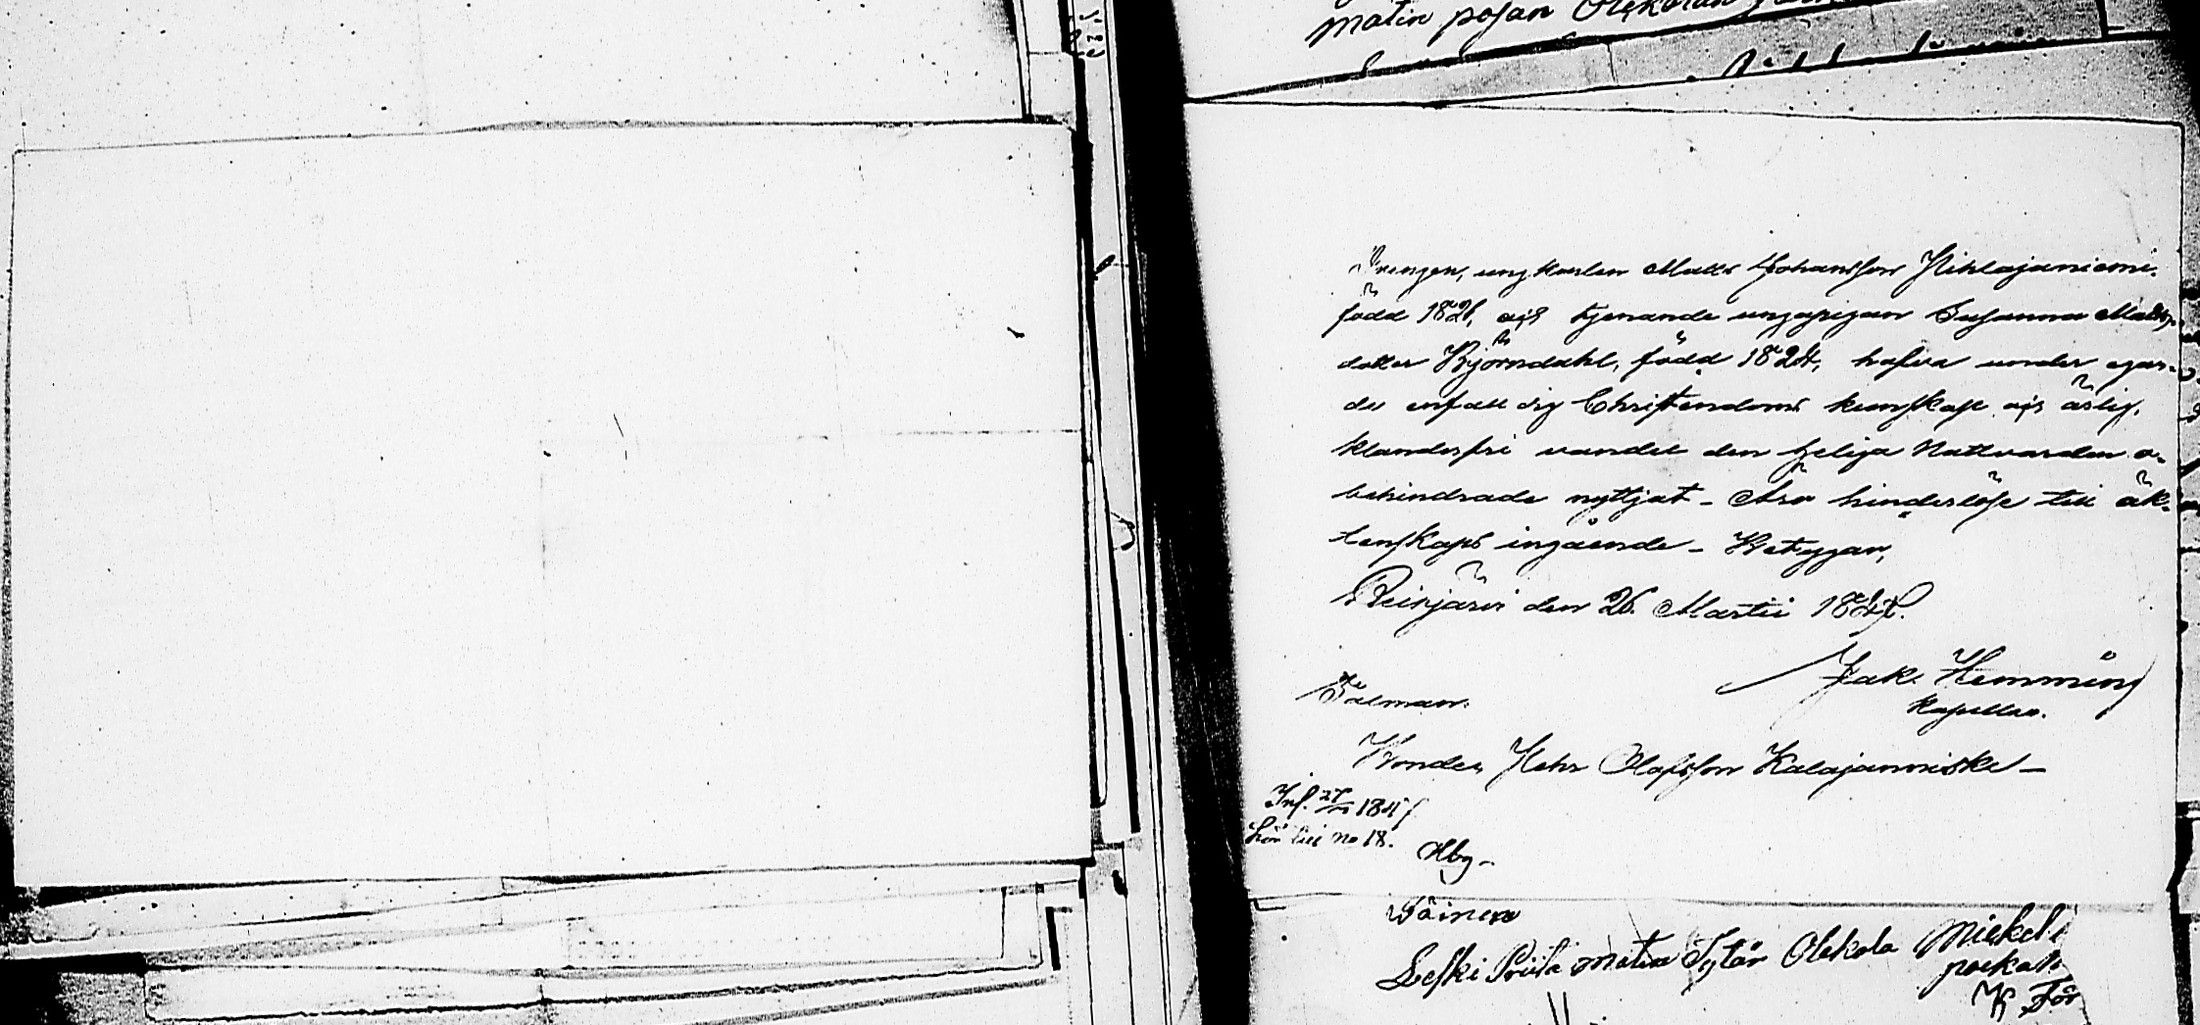 Matin pojan
Drengen, ungkarlen Matts Johansson Pihlajaniemi,
född 1826, och tjenande ungpigan Susanna Matts-
dotter Björndahl, född 1824, hafva under egan-
de enfalldig Christendoms kunskap och ärlig,
klanderfri vandel den heliga Nattvarden o-
behindrade nyttjat - Äro hinderlöse till äk-
tenskaps ingående - Betygar,
Reisjärvi den 26. Martii 1847.
Jak. Hemming
Kapellan.
Talman.
Bonden Olofsson Kalajanniska -
Inf. 27/ 1847
Lön till No 18.
Hbg -
Töinen
Leski Matin Tytär Olekola Mickeli
poika
K För